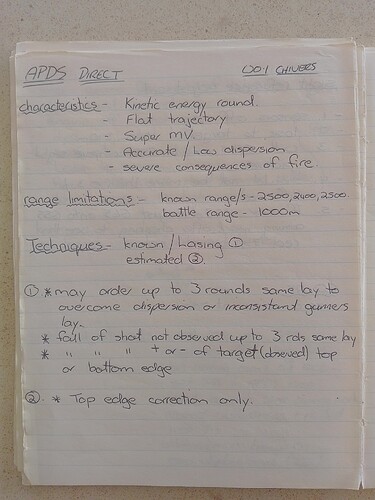 APDS DIRECT WO1 CHIVERS
characteristics - Kinetic energy round.
- Flat trajectory
- Super MV.
- Accurate / Low dispersion
- severe consequences of fire.
range limitations - known range/s - 2500, 2400, 2500.
battle range - 1000m
Techniques - known / Lasing ①
estimated ②.
① * may order up to 3 rounds same lay to
overcome dispersion or inconsistand gunners
lay.
* fall of shot not observed up to 3 rds same lay
* " " " + or - of target (observed) top
or bottom edge
② * Top edge correction only.